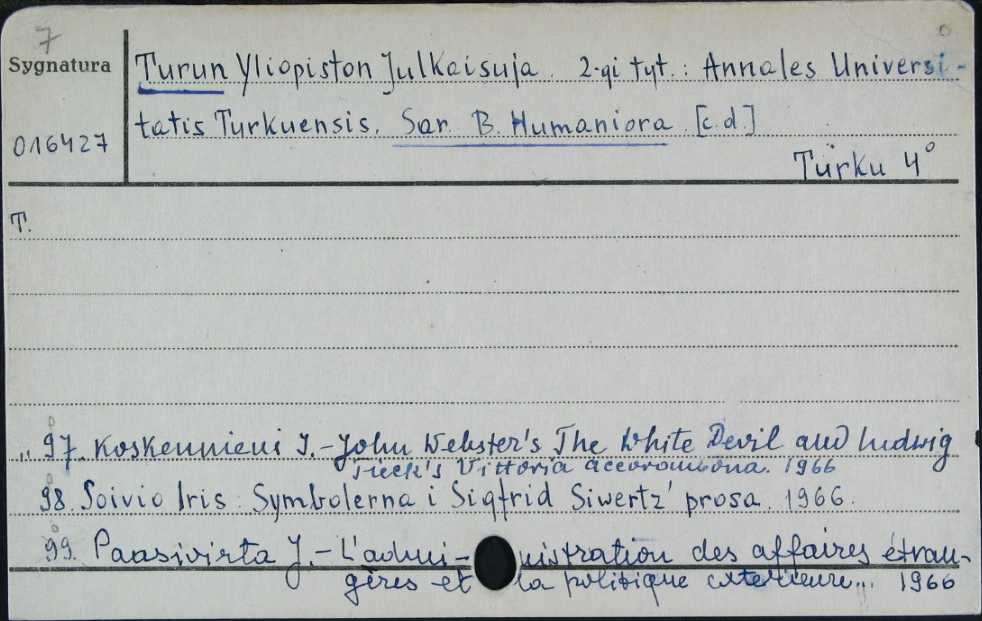 7
Sygnatura
Turun Yliopiston Julkaisuja. 2-gi tyt.: Annales Universi-
016427
tatis Turkuensis. Sar. B. Humaniora. [c.d.]
Turku 4°
T.
„ 97. Koskennieui I.-John Webster's The White Devil and Ludwig
Tieck's Vittoria Accorombona. 1966
98. Soivio Iris: Symbolerna i Sigfrid Siwertz' prosa. 1966.
99. Paasivirta J.- L'admi-nistration des affaires étran-
gères et la politique exterieure... 1966